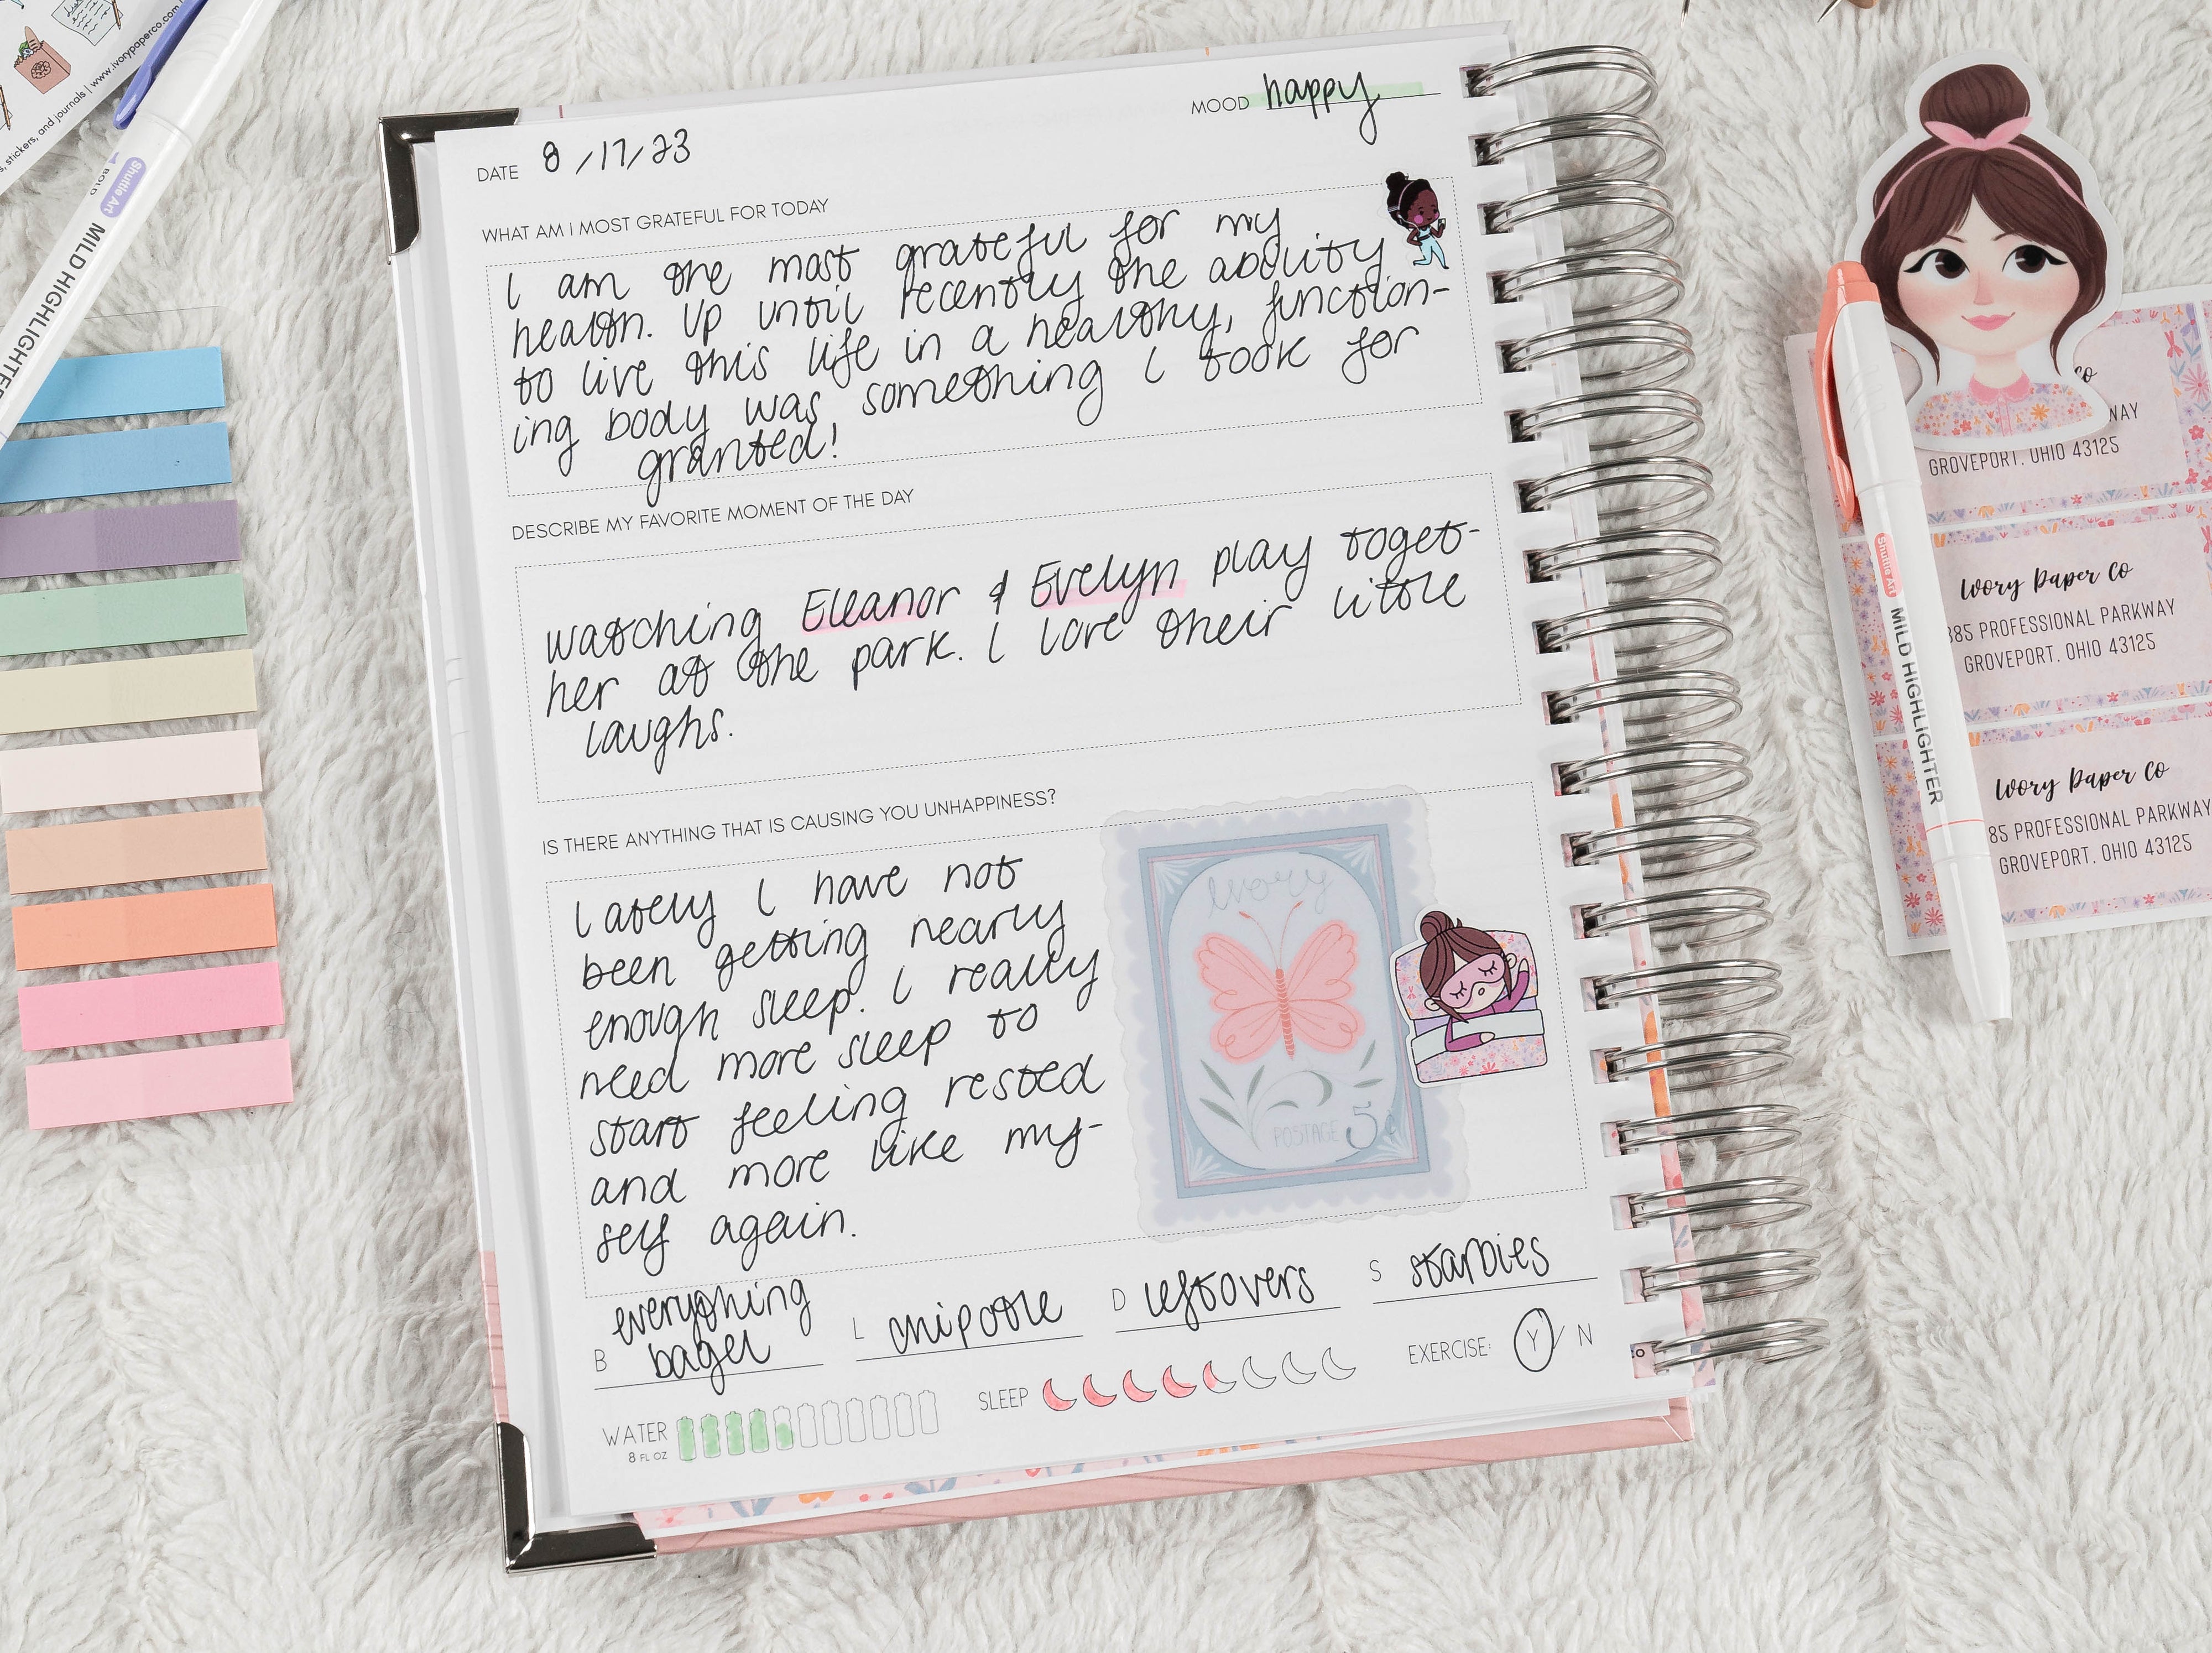 stickers, and journals | www.ivorypaperco.com
Shuttle Art
BOLD
MILD HIGHLIGHTER
MOOD happy
DATE 8/17/23
WHAT AM I MOST GRATEFUL FOR TODAY
I am the most grateful for my
health. Up until recently the ability
to live this life in a healthy, function-
ing body was something I took for
granted!
DESCRIBE MY FAVORITE MOMENT OF THE DAY
watching Eleanor & Evelyn play toget-
her at the park. I love their little
laughs.
IS THERE ANYTHING THAT IS CAUSING YOU UNHAPPINESS?
Lately I have not
been getting nearly
enough sleep. I really
need more sleep to
start feeling rested
and more like my-
self again.
Ivory
POSTAGE 5¢
B everything
bagel
L chipotle
D leftovers
S starbies
WATER
8 FL OZ
SLEEP
EXERCISE: Y / N
CO
WAY
GROVEPORT, OHIO 43125
Ivory Paper Co
885 PROFESSIONAL PARKWAY
GROVEPORT, OHIO 43125
Ivory Paper Co
85 PROFESSIONAL PARKWAY
GROVEPORT, OHIO 43125
Shuttle Art
MILD HIGHLIGHTER